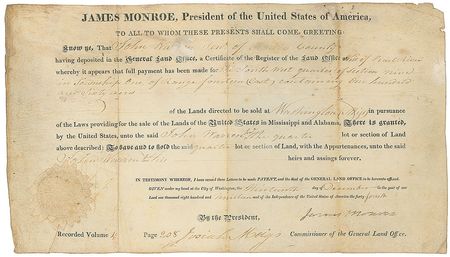 JAMES MONROE, President of the United States of America,
TO ALL TO WHOM THESE PRESENTS SHALL COME, GREETING:
Know ye, That John of County
having deposited in the General Land Office, a Certificate of the Register of the Land Office at
whereby it appears that full payment has been made for the South West quarter of section nine
in Township of Range fourteen East, containing One hundred
and Sixty acres
of the Lands directed to be sold at Washington, Mip in pursuance
of the Laws providing for the sale of the Lands of the United States in Mississippi and Alabama, There is granted,
by the United States, unto the said John Warren the quarter lot or section of Land
above described: To have and to hold the said quarter lot or section of Land, with the Appurtenances, unto the said
John Warren his heirs and assigns forever.
IN TESTIMONY WHEREOF, I have caused these Letters to be made PATENT, and the SEAL of the GENERAL LAND OFFICE to be hereunto affixed.
GIVEN under my hand at the City of Washington, the day of December in the year of our
Lord one thousand eight hundred and nineteen and of the Independence of the United States of America the forty fourth
By the President, James Monroe
Recorded Volume Page 208 Josiah Meigs Commissioner of the General Land Office.